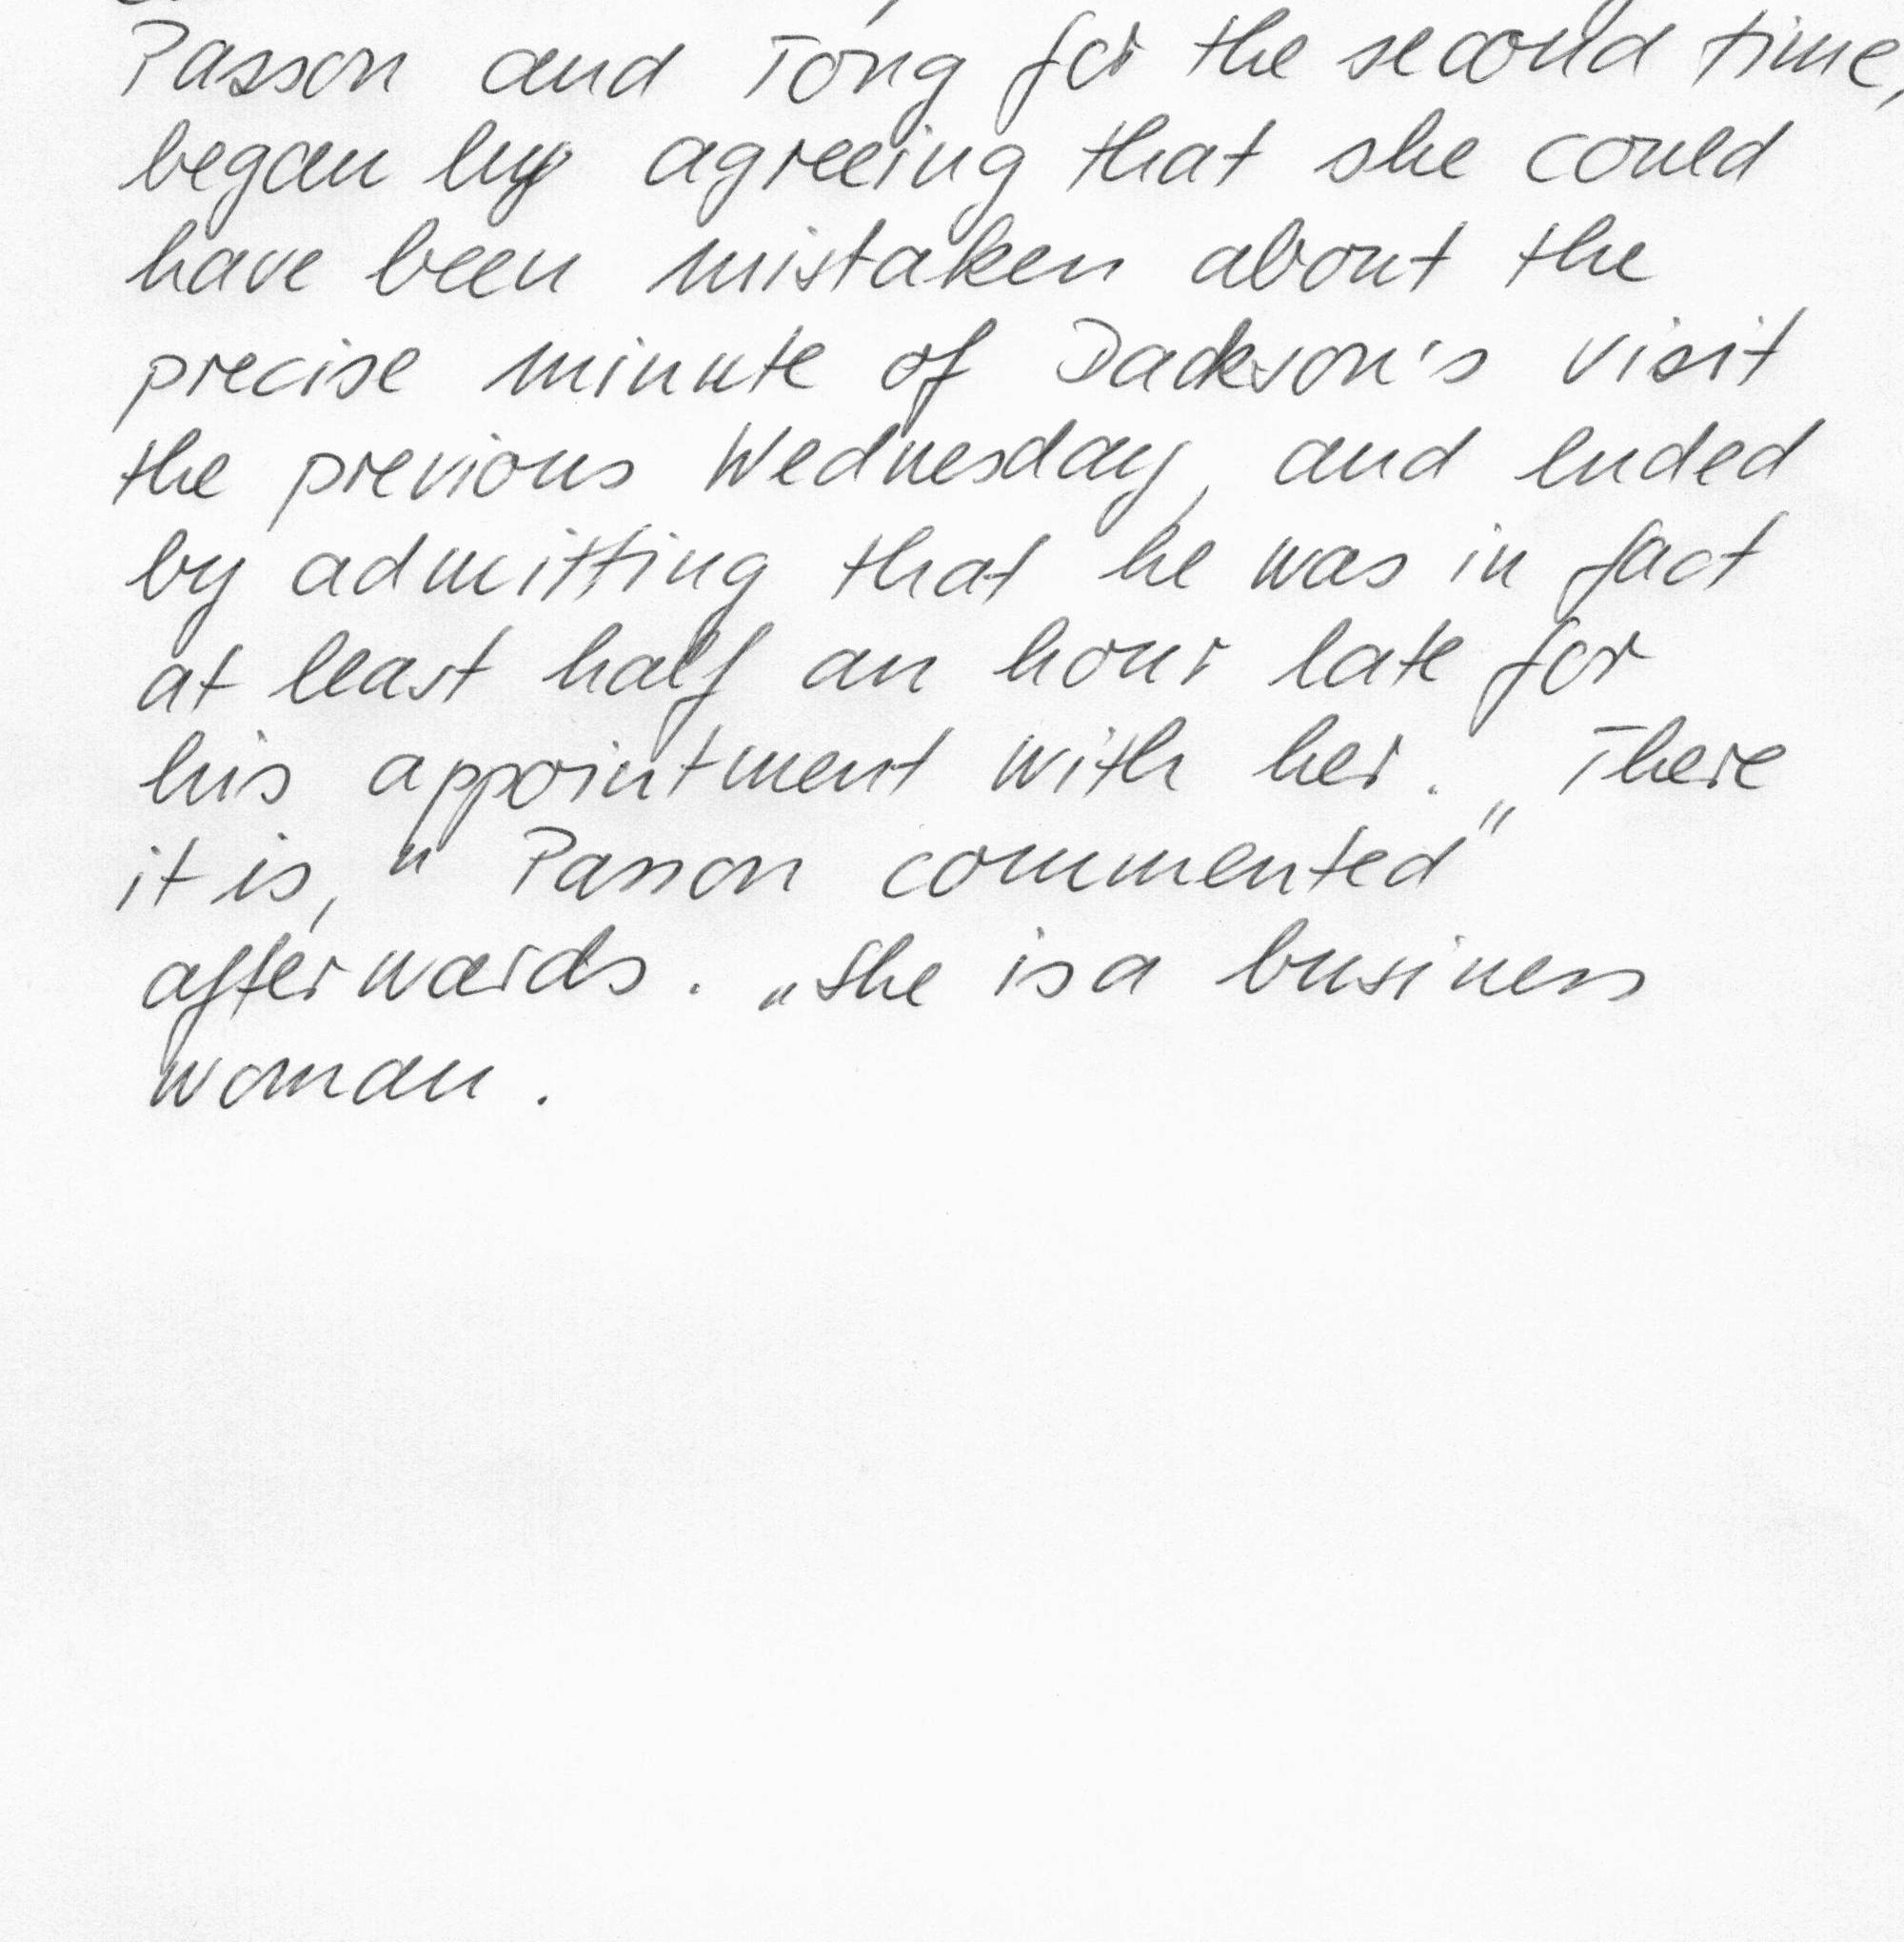 Passon and Tong for the second time,
began by agreeing that she could
have been mistaken about the
precise minute of Dackson's visit
the previous Wednesday, and ended
by admitting that he was in fact
at least half an hour late for
his appointment with her. „There
it is," Passon commented"
afterwards. „She is a business
woman.